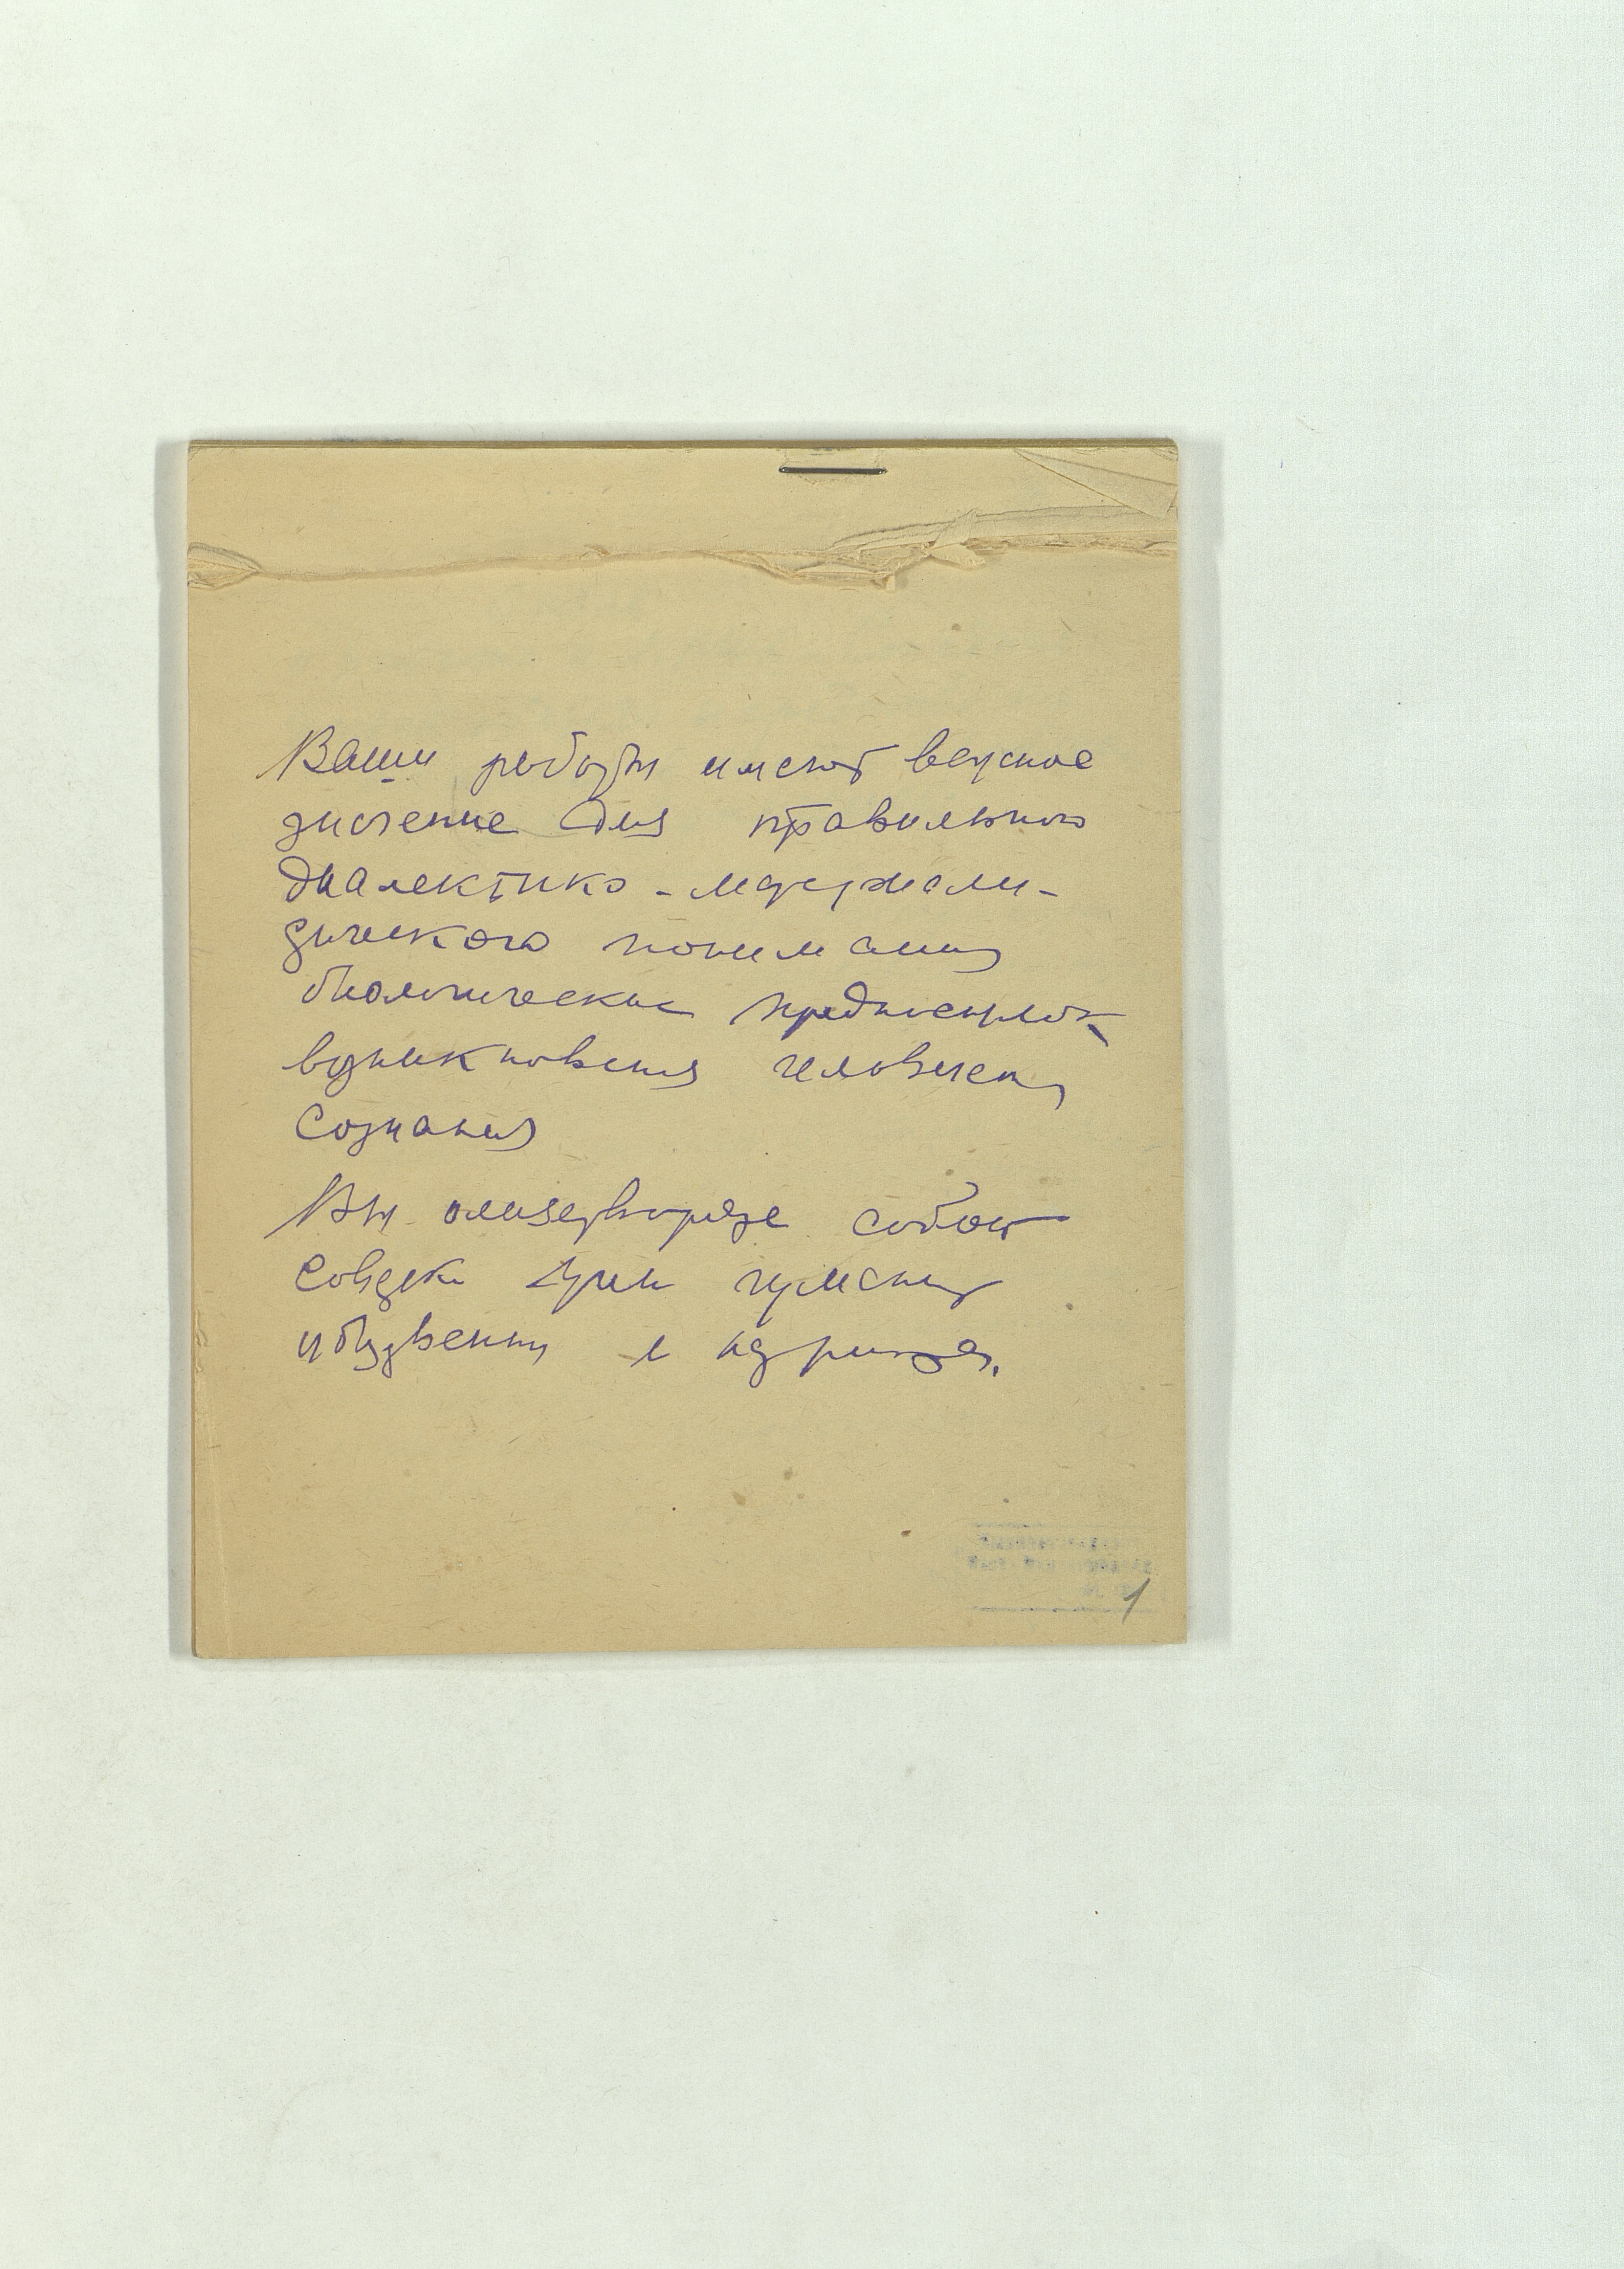 Ваши работы имеют веское
значение для правильного
диалектико-материали-
стического понимания
биологических предпосылок
возникновения человеческ
сознания
Вы олицетворяете собой
советск
и
1